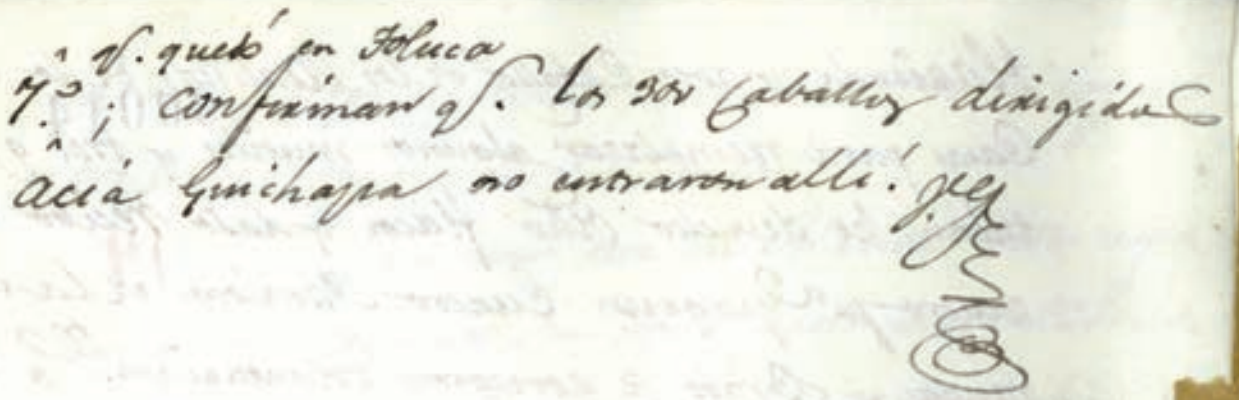 q. quedó en Toluca
7.º ; confirman q. los 300 Caballos dirigidos
acia Guichapa no entraron allí.